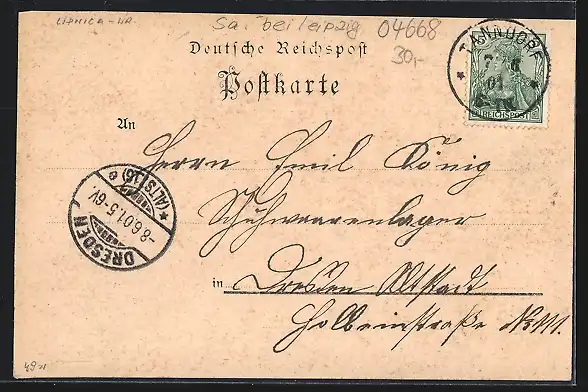 LIPNICA - HR.
Sa. bei leipzig 04668
30,-
Deutsche Reichspost
Postkarte
TANNDORF
7 6
01
REICHSPOST
An
Herrn Emil König
Schuhwaarenlager
in Dresden Altstadt
Holbeinstraße No 111.
DRESDEN
-8.6.01.5-6V.
* (ALTST.) 16 e